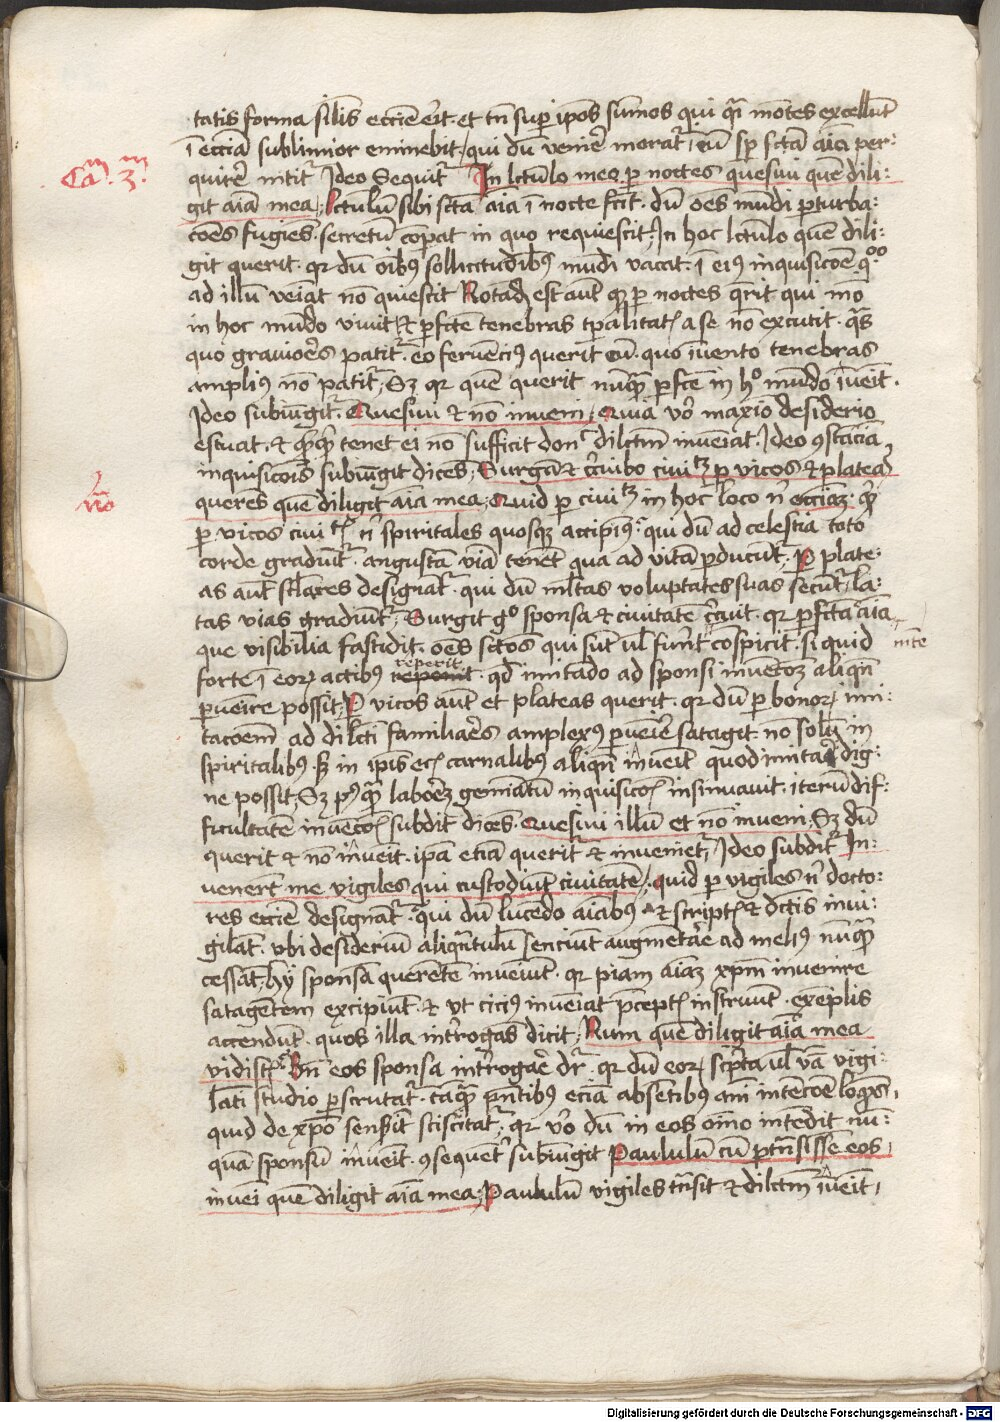 tatis forma silis eccie erit et tn sup ipos sumos qui qi motes excellut
i eccia sublimior eminebit, qui du venire morat, cu sp scta aia per:
Cam 3m
quire nitit Ideo Sequit In lctulo meo p noctes quesiui que dili:
git aia mea, lctulu sibi scta aia i nocte fecit. du oes mudi pturba:
coes fugies. secretu coparat in quo requiescit, In hoc lctulo que dili:
git querit. qr du oibus sollicitudibus mudi vacat. i eius inquisicoe qo
ad illu veniat no quiescit Notad est aut qp p noctes qrit qui mo
in hoc mudo viuit, et pfcte tenebras tpalitatis a se no excutit. qs
quo grauiores patit. eo feruencius querit eu. quo inuento tenebras
amplius no patit, Sz qr que querit nuq pfcte in ho mudo inueit.
Ideo subiugit. Quesiui et no inueni, Quia vo maxio desiderio
estuat. et qcq tenet ei no sufficit donc dilctm inueiat. Ideo 9stacia
inquisicois subiugit dices, Surga et circuibo ciuitz p vicos et plateas
no
queres que diligit aia mea, Quid p ciuitz in hoc loco ni ecciaz. qi
p vicos ciuitis ni spiritales quosqz accipimus: qui du ad celestia toto
corde gradiut. angusta via tenet qua ad vita pducunt, P plate:
as aut sclares designat. qui du mltas voluptates suas secut, la:
tas vias gradiut, Surgit go sponsa et ciuitate circuit. qr pfcta aia
que visibilia fastidit. oes sctos qui sut ul fuert cospicit. si quid
inte
forte i eoru actibus reperit qd imitado ad sponsi inuetoez aliqn
puenire possit, P vicos aut et plateas querit. qr du p bonoru imi:
tacoem ad dilcti familiares amplexus puenire satagit. no solu in
spiritalibus. sz in ipis eciam carnalibus aliqn inueit quod imitari dig:
ne possit, Sz post qi laborez geminatu inquisicois insinuauit. iteru dif:
ficultate inuecois subdit dices. Quesiui illu et no inueni, Sz du
querit et no inueit. ipa etia querit et inuenietur, Ideo subdit In:
venert me vigiles qui custodiut ciuitate, quid p vigiles ni docto:
res eccie designat. qui du lucendo aiabus et scriptis et dictis inui:
gilant. vbi desideriu aliqntulu senciut augmetare ad melius nuq
cessat, hy sponsa querente inueiut. qr piam aiaz xpm inuenire
satagentem excipiut. et vt cicius inueiat pceptis instruut. exeplis
accendut. quos illa interrogas dicit, Num que diligit aia mea
vidistis, Bn eos sponsa interrogare dr. qr du eoru scripta ul va vigi:
lati studio pscrutat. taq pntibus etia absetibus ani intencoe loques,
quid de xpo senserit sciscitat. qr vo du in eos oino intedit nu:
qua sponsu inueit. 9sequeter subiugit Paululu cu ptransisse eos,
inuei que diligit aia mea, Paululu vigiles trasit et dilctm inueit,
Digitalisierung gefördert durch die Deutsche Forschungsgemeinschaft - DFG